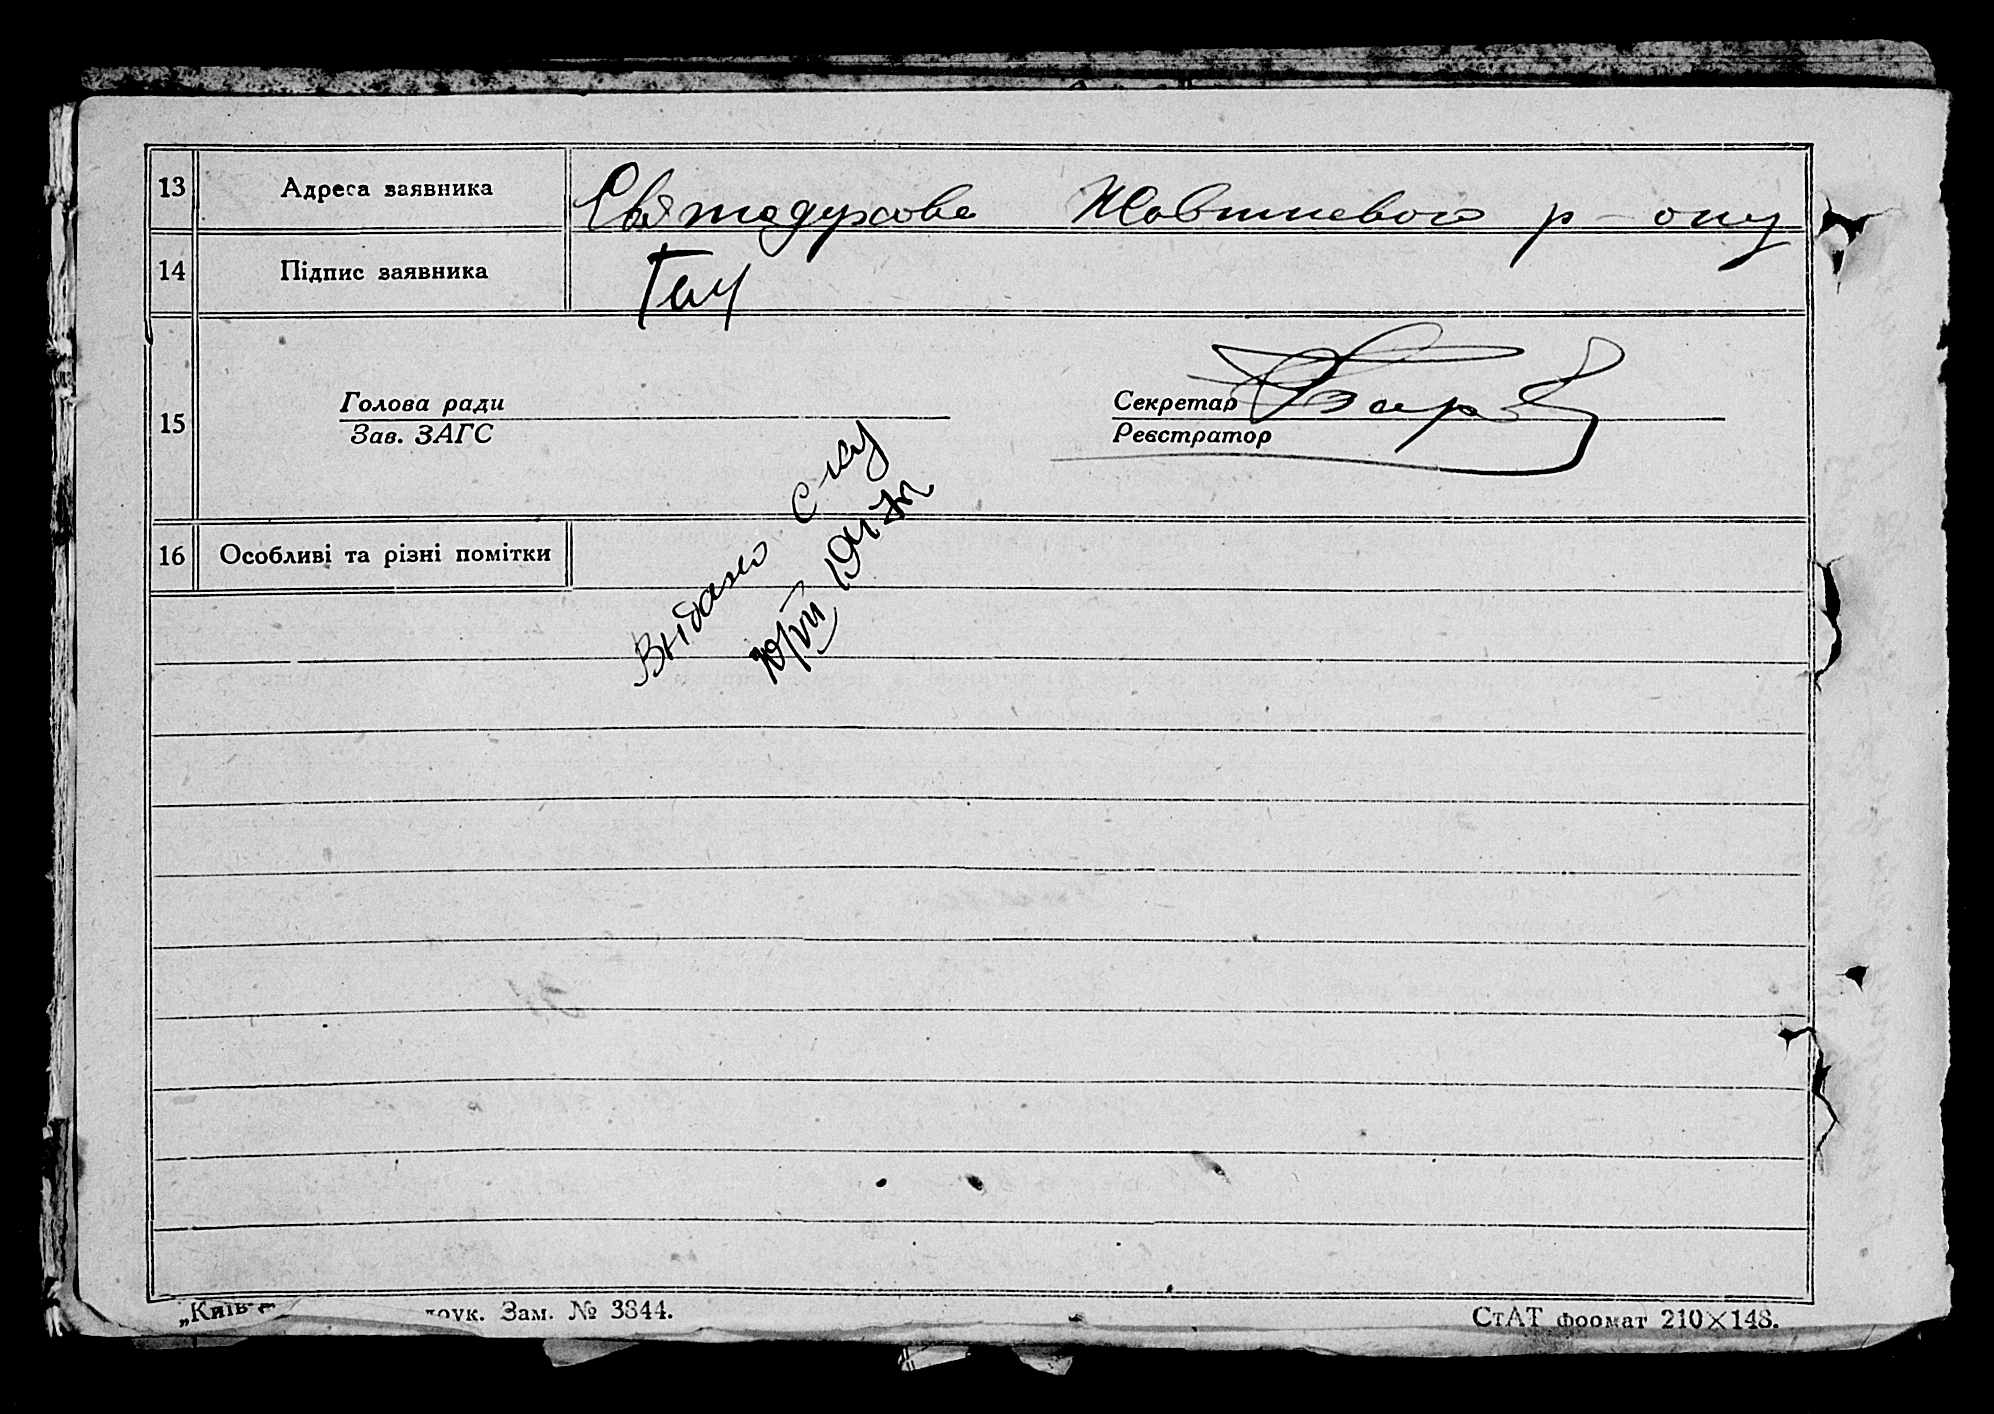 13 Адреса заявника Святодухове Жовтневого р-ону
14 Підпис заявника
15 Голова ради Секретар
Зав. ЗАГС Реєстратор
16 Особливі та різні помітки
Видано
VII 194
„Київ друк. Зам. № 3844. СтАТ формат 210×148.